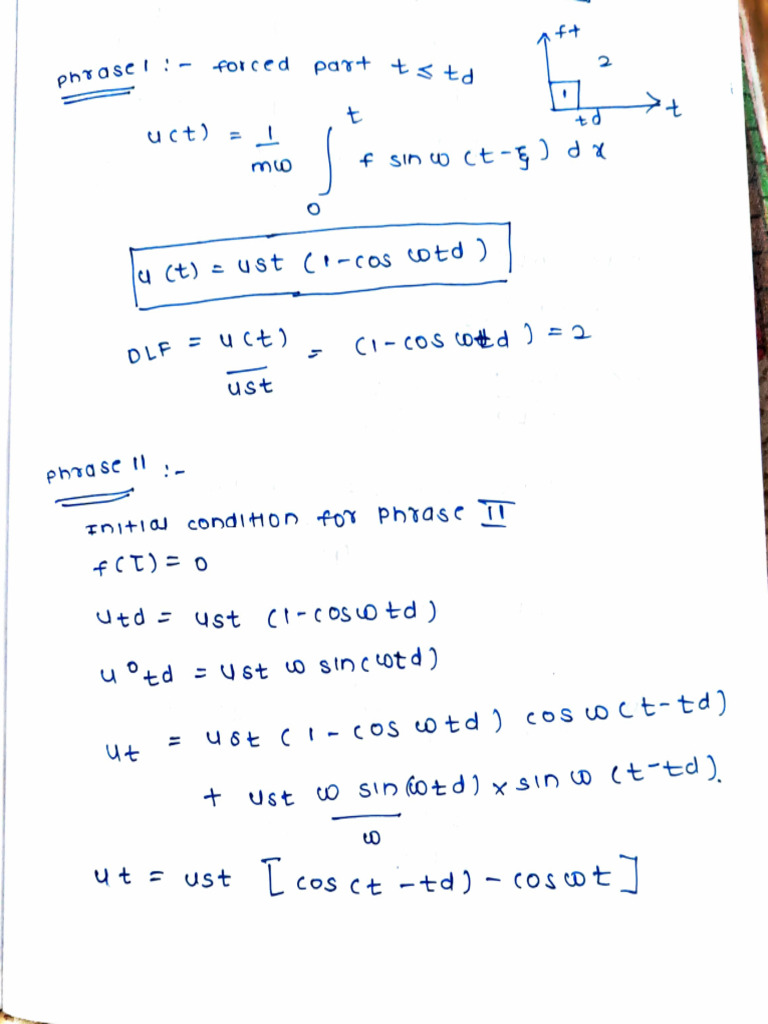 phrase I :- forced part t ≤ td
ft
2
1
td
t
u(t) = 1/mω ∫₀ᵗ f sin ω (t-ξ) dx
u (t) = ust (1-cos ωtd)
DLF = u(t)/ust = (1-cos ωtd) = 2
phrase II :-
Initial condition for phrase II
f(τ) = 0
utd = ust (1-cosωtd)
u°td = ust ω sin(ωtd)
ut = ust (1-cos ωtd) cos ω(t-td)
+ ust ω sin(ωtd)/ω x sin ω (t-td).
ut = ust [cos (t-td) - cos ωt]